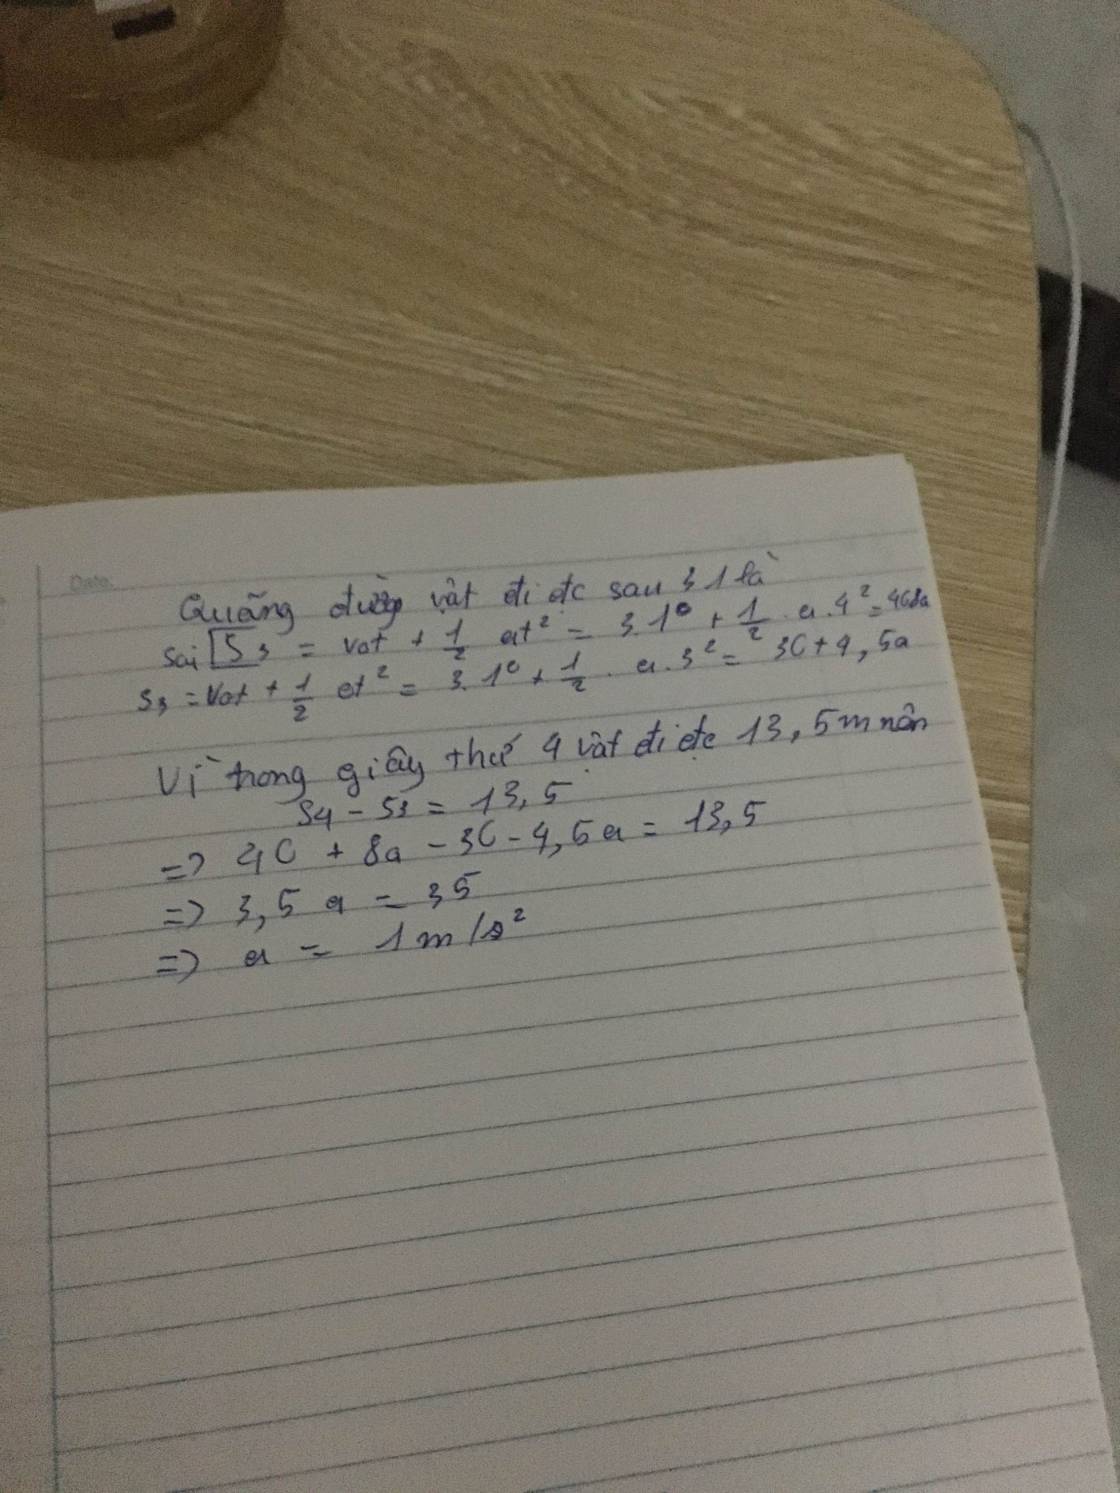 Date:
Quãng đường vật đi đc sau 3 1 là
Sai S3 = Vot + 1/2 at² = 3.10 + 1/2 . a.4² = 40 8a
S3 = Vot + 1/2 at² = 3.10 + 1/2 . a.3² = 30 + 4,5a
Vì trong giây thứ 4 vật đi đc 13,5m nên
S4 - S3 = 13,5
=> 40 + 8a - 30 - 4,5a = 13,5
=> 3,5 a = 35
=> a = 1m/s²